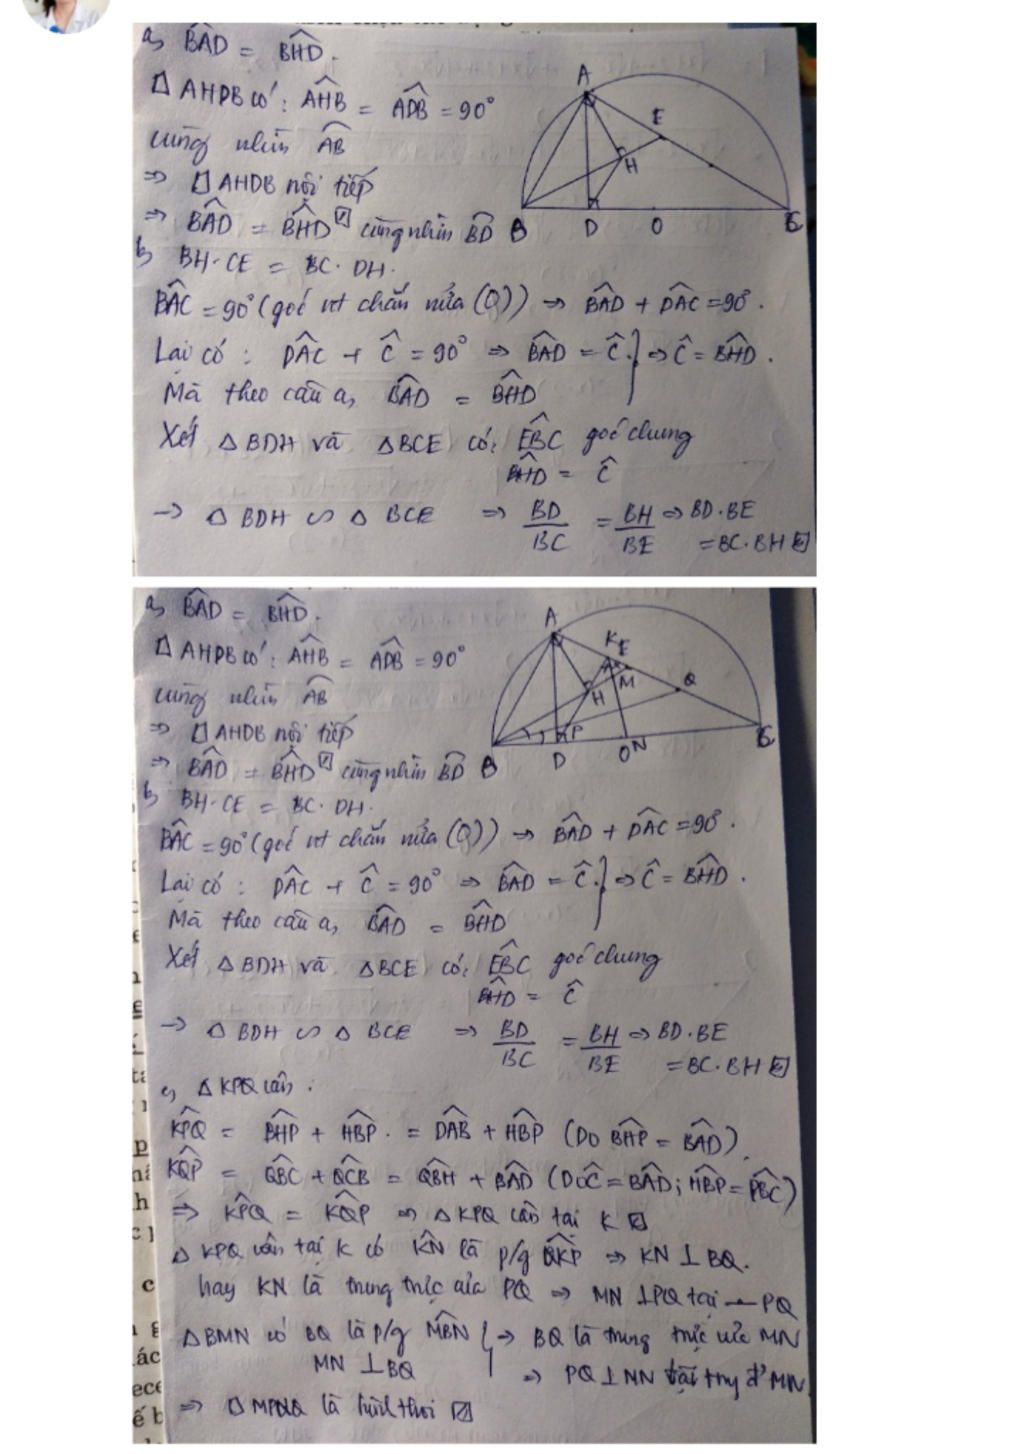 a, BAD = BHD.
□ AHDB có: AHB = ADB = 90°
cùng nhìn AB
⇒ □ AHDB nội tiếp
⇒ BAD = BHD cùng nhìn BD
b, BH.CE = BC.DH.
BAC = 90° (góc nt chắn nửa (O)) ⇒ BAD + DAC = 90°.
Lại có: DAC + C = 90° ⇒ BAD = C. } ⇒ C = BHD.
Mà theo câu a, BAD = BHD
Xét △BDH và △BCE có: EBC góc chung
BHD = C
→ △BDH ∽ △BCE ⇒ BD/BC = BH/BE ⇒ BD.BE
= BC.BH
A
E
H
B D O C
a, BAD = BHD.
□ AHDB có: AHB = ADB = 90°
cùng nhìn AB
⇒ □ AHDB nội tiếp
⇒ BAD = BHD cùng nhìn BD
b, BH.CE = BC.DH.
BAC = 90° (góc nt chắn nửa (O)) ⇒ BAD + DAC = 90°.
Lại có: DAC + C = 90° ⇒ BAD = C. } ⇒ C = BHD.
Mà theo câu a, BAD = BHD
Xét △BDH và △BCE có: EBC góc chung
BHD = C
→ △BDH ∽ △BCE ⇒ BD/BC = BH/BE ⇒ BD.BE
= BC.BH
A
K E
M Q
H
P
B D O N C
c, △KPQ cân:
KPQ = BHP + HBP = DAB + HBP (Do BHP = BAD).
KQP = QBC + QCB = QBH + BAD (Do C = BAD; HBP = PBC)
⇒ KPQ = KQP ⇒ △KPQ cân tại K
△KPQ cân tại K có KN là p/g QKP ⇒ KN ⊥ BQ.
hay KN là trung trực của PQ ⇒ MN ⊥ PQ tại PQ
△BMN có BQ là p/g MBN } → BQ là trung trực của MN
MN ⊥ BQ ⇒ PQ ⊥ MN tại trg đ' MN
⇒ □ MPNQ là hình thoi